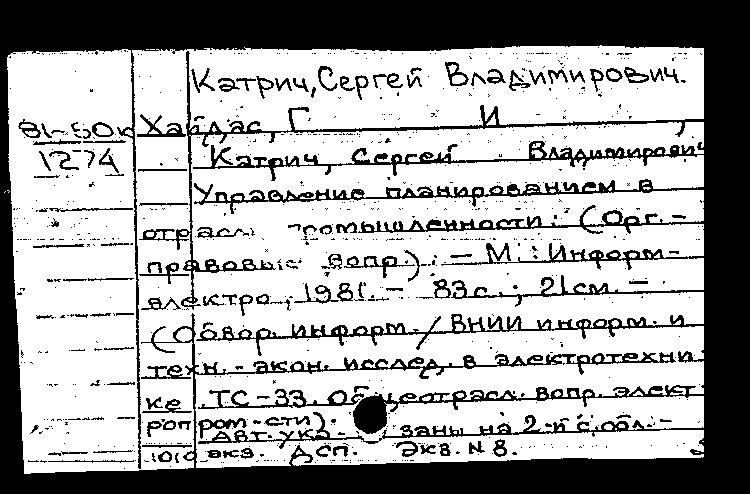 Катрич, Сергей Владимирович.
81-50к Хайдас, Г И ,
1274 Катрич, Сергей Владимирович
Управление планированием в
отрасл. промышленности: (Орг.-
правовые вопр). - М.: Информ-
электро, 1981. - 83с.; 21см. -
(Обзор. информ. / ВНИИ информ. и
техн.-экон. исслед. в электротехни-
ке. ТС-33. Общеотрасл. вопр. элект
ропром-сти).
Авт. указаны на 2-й с. обл. -
1010 экз. ДСП. Экз. N 8.